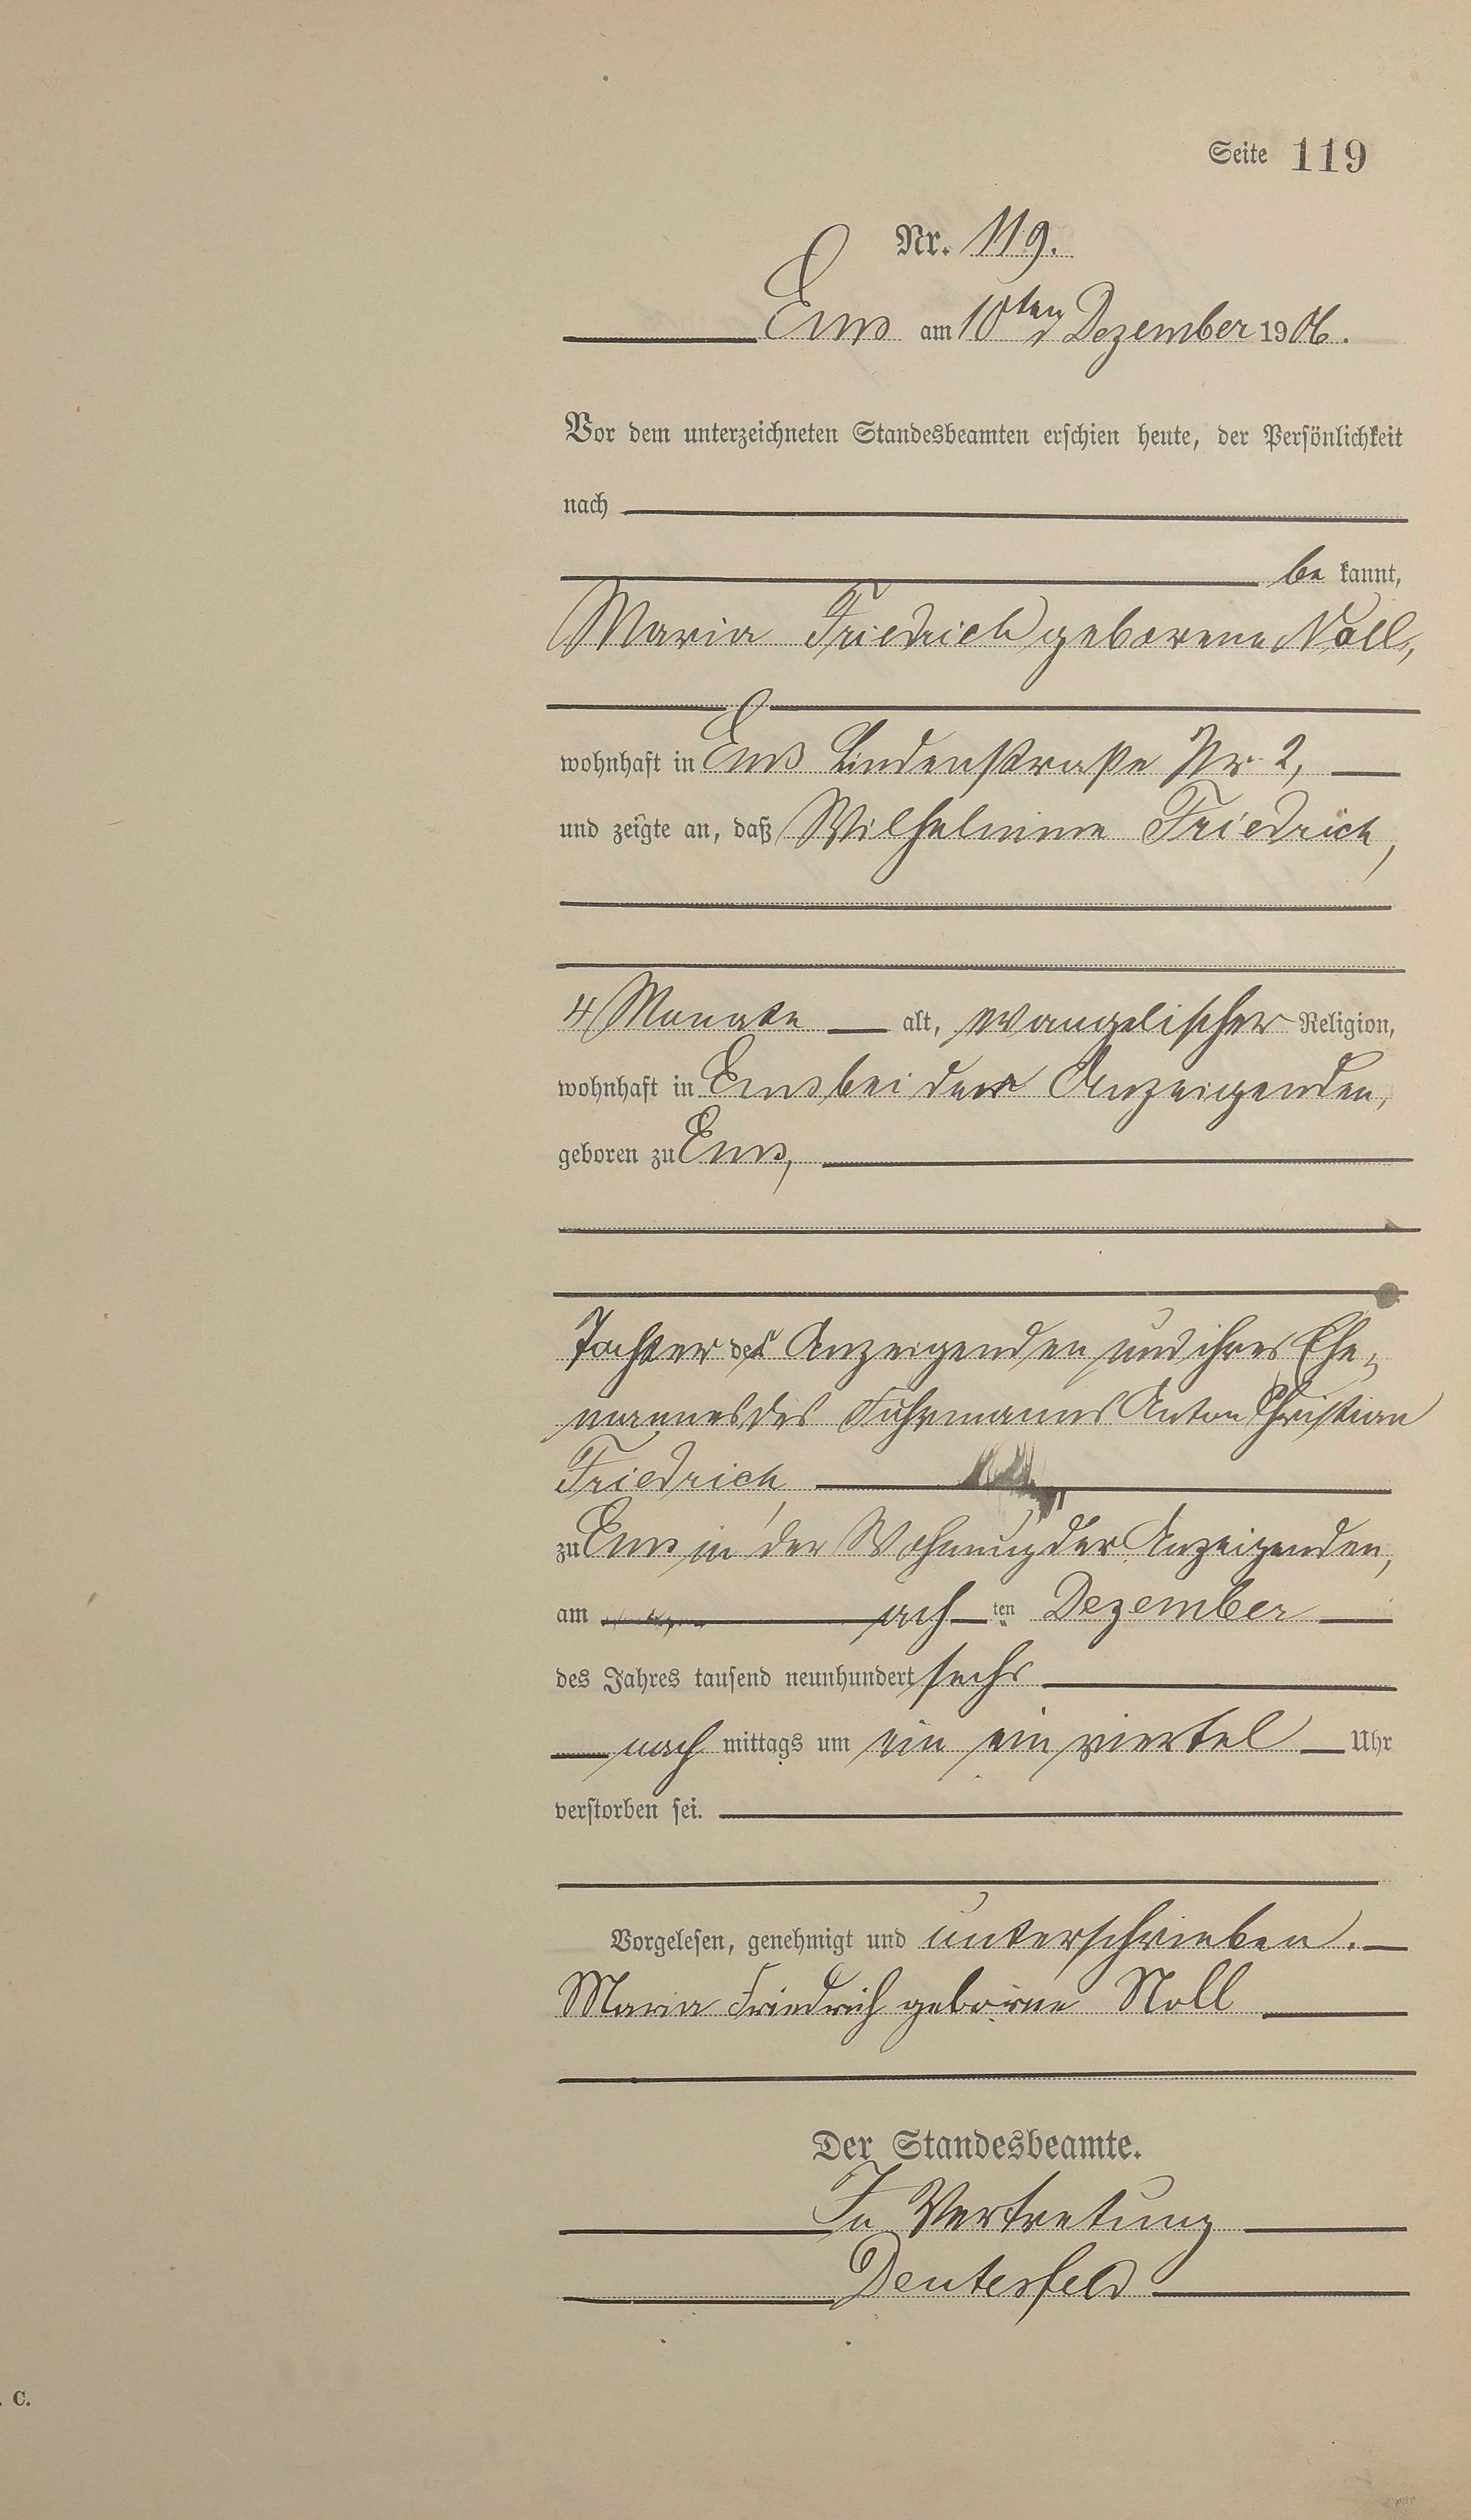 Seite 119
Nr. 119.
Ems am 10ten Dezember 1906.
Vor dem unterzeichneten Standesbeamten erschien heute, der Persönlichkeit
nach
be kannt,
Maria Friedrich geborene Noll,
wohnhaft in Ems Lindenstraße Nr 2,
und zeigte an, daß Wilhelmine Friedrich,
4 Monate alt, evangelischer Religion,
wohnhaft in Ems bei der Anzeigenden,
geboren zu Ems,
Tochter der Anzeigenden und ihres Ehe-
mannes des Fuhrmanns Anton Christian
Friedrich
zu Ems in der Wohnung der Anzeigenden,
am ach ten Dezember
des Jahres tausend neunhundert sechs
nach mittags um ein ein viertel Uhr
verstorben sei.
Vorgelesen, genehmigt und unterschrieben.
Maria Friedrich geborne Noll
Der Standesbeamte.
In Vertretung
Deutesfeld
. C.